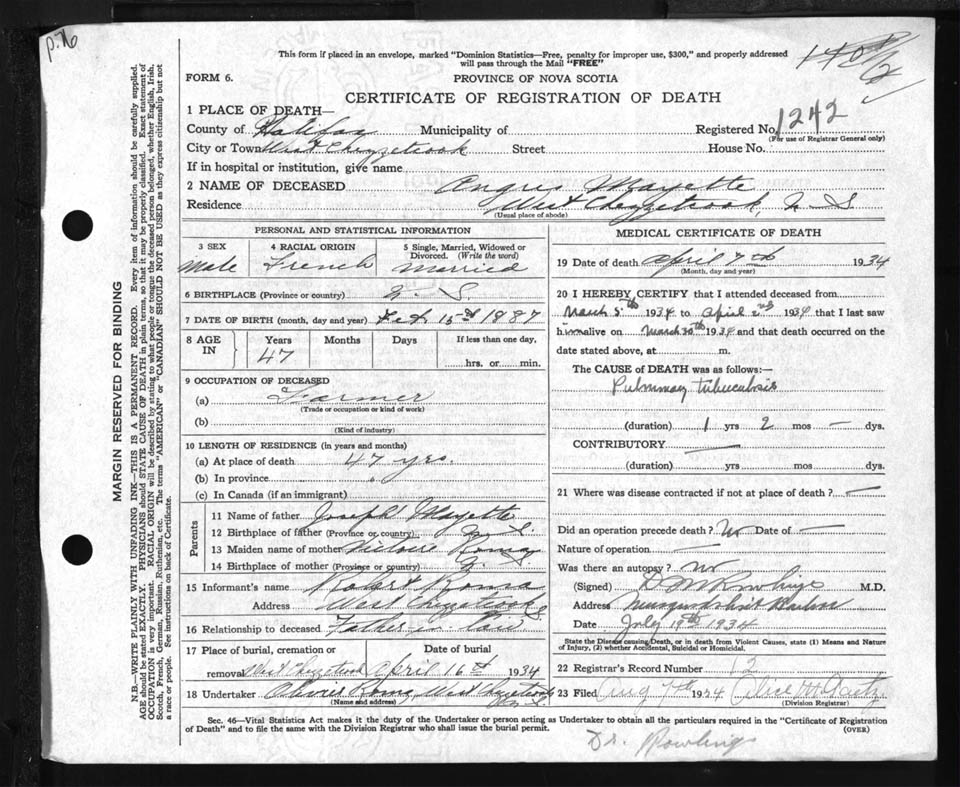 p.76
This form if placed in an envelope, marked "Dominion Statistics—Free, penalty for improper use, $300," and properly addressed
will pass through the Mail "FREE"
FORM 6.
PROVINCE OF NOVA SCOTIA
CERTIFICATE OF REGISTRATION OF DEATH
1 PLACE OF DEATH—
County of Halifax Municipality of Registered No. 1242
(For use of Registrar General only)
City or Town West Chezzetcook Street House No.
If in hospital or institution, give name
2 NAME OF DECEASED Angus Mayette
Residence West Chezzetcook, N S
(Usual place of abode)
PERSONAL AND STATISTICAL INFORMATION
3 SEX 4 RACIAL ORIGIN 5 Single, Married, Widowed or
Divorced. (Write the word)
Male French Married
6 BIRTHPLACE (Province or country) N. S.
7 DATE OF BIRTH (month, day and year) Feb 15 1887
8 AGE IN Years Months Days If less than one day,
47 hrs. or min.
9 OCCUPATION OF DECEASED
(a) Farmer
(Trade or occupation or kind of work)
(b)
(Kind of industry)
10 LENGTH OF RESIDENCE (in years and months)
(a) At place of death 47 yrs.
(b) In province "
(c) In Canada (if an immigrant)
Parents
11 Name of father Joseph Mayette
12 Birthplace of father (Province or country) N. S.
13 Maiden name of mother Roma
14 Birthplace of mother (Province or country) N. S.
15 Informant's name Robert Roma
Address West Chezzetcook
16 Relationship to deceased Father in law
17 Place of burial, cremation or Date of burial
removal West Chezzetcook April 16 1934
18 Undertaker Roma, West Chezzetcook
(Name and address) N S
MEDICAL CERTIFICATE OF DEATH
19 Date of death April 7th 1934
(Month, day and year)
20 I HEREBY CERTIFY that I attended deceased from
March 5th 1934 to April 2nd 1934 that I last saw
him alive on March 30th 1934 and that death occurred on the
date stated above, at m.
The CAUSE of DEATH was as follows:—
Pulmonary tuberculosis
(duration) 1 yrs 2 mos — dys.
CONTRIBUTORY —
(duration) yrs mos dys.
21 Where was disease contracted if not at place of death? —
Did an operation precede death? No Date of —
Nature of operation —
Was there an autopsy? No
(Signed) D M Rowlings M.D.
Address Musquodoboit Harbor
Date July 19th 1934
State the Disease causing Death, or in death from Violent Causes, state (1) Means and Nature
of Injury, (2) whether Accidental, Suicidal or Homicidal.
22 Registrar's Record Number 12
23 Filed Aug 7th 1934 Alice Gaetz
(Division Registrar)
Sec. 46—Vital Statistics Act makes it the duty of the Undertaker or person acting as Undertaker to obtain all the particulars required in the "Certificate of Registration
of Death" and to file the same with the Division Registrar who shall issue the burial permit. (OVER)
Dr. Rowlings
MARGIN RESERVED FOR BINDING
N.B.—WRITE PLAINLY WITH UNFADING INK—THIS IS A PERMANENT RECORD. Every item of information should be carefully supplied.
AGE should be stated EXACTLY. PHYSICIANS should STATE CAUSE OF DEATH in plain terms, so that it may be properly classified. Exact statement of
OCCUPATION is very important. RACIAL ORIGIN will be described by stating to what people or tongue the deceased person belonged, whether English, Irish,
Scotch, French, German, Russian, Ruthenian, etc. The terms "AMERICAN" or "CANADIAN" SHOULD NOT BE USED as they express citizenship but not
a race or people. See instructions on back of Certificate.